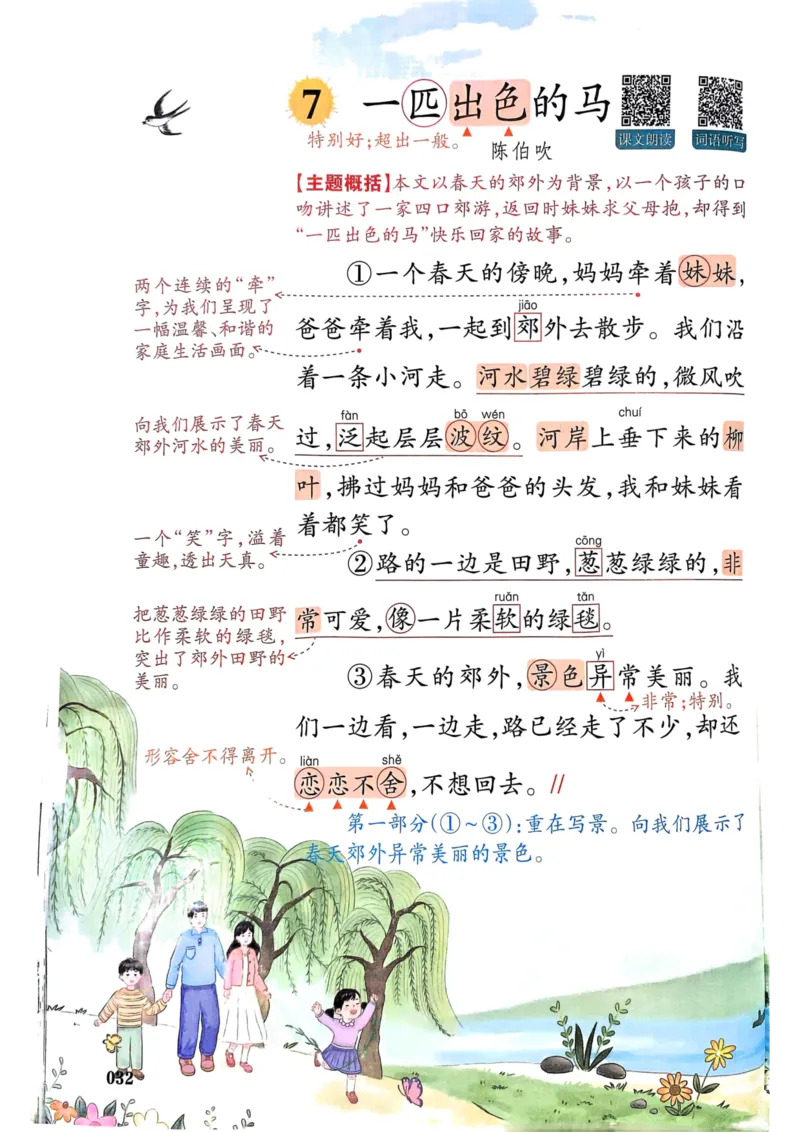 7 一匹出色的马
课文朗读 词语听写
特别好;超出一般。
陈伯吹
【主题概括】本文以春天的郊外为背景,以一个孩子的口
吻讲述了一家四口郊游,返回时妹妹求父母抱,却得到
“一匹出色的马”快乐回家的故事。
①一个春天的傍晚,妈妈牵着妹妹,
两个连续的“牵”
字,为我们呈现了
一幅温馨、和谐的
家庭生活画面。
jiāo
爸爸牵着我,一起到郊外去散步。我们沿
着一条小河走。河水碧绿碧绿的,微风吹
向我们展示了春天
郊外河水的美丽。
fàn bō wén chuí
过,泛起层层波纹。河岸上垂下来的柳
叶,拂过妈妈和爸爸的头发,我和妹妹看
着都笑了。
一个“笑”字,溢着
童趣,透出天真。
cōng
②路的一边是田野,葱葱绿绿的,非
把葱葱绿绿的田野
比作柔软的绿毯,
突出了郊外田野的
美丽。
ruǎn tǎn
常可爱,像一片柔软的绿毯。
yì
③春天的郊外,景色异常美丽。我
非常;特别。
们一边看,一边走,路已经走了不少,却还
形容舍不得离开。
liàn shě
恋恋不舍,不想回去。//
第一部分(①~③):重在写景。向我们展示了
春天郊外异常美丽的景色。
032